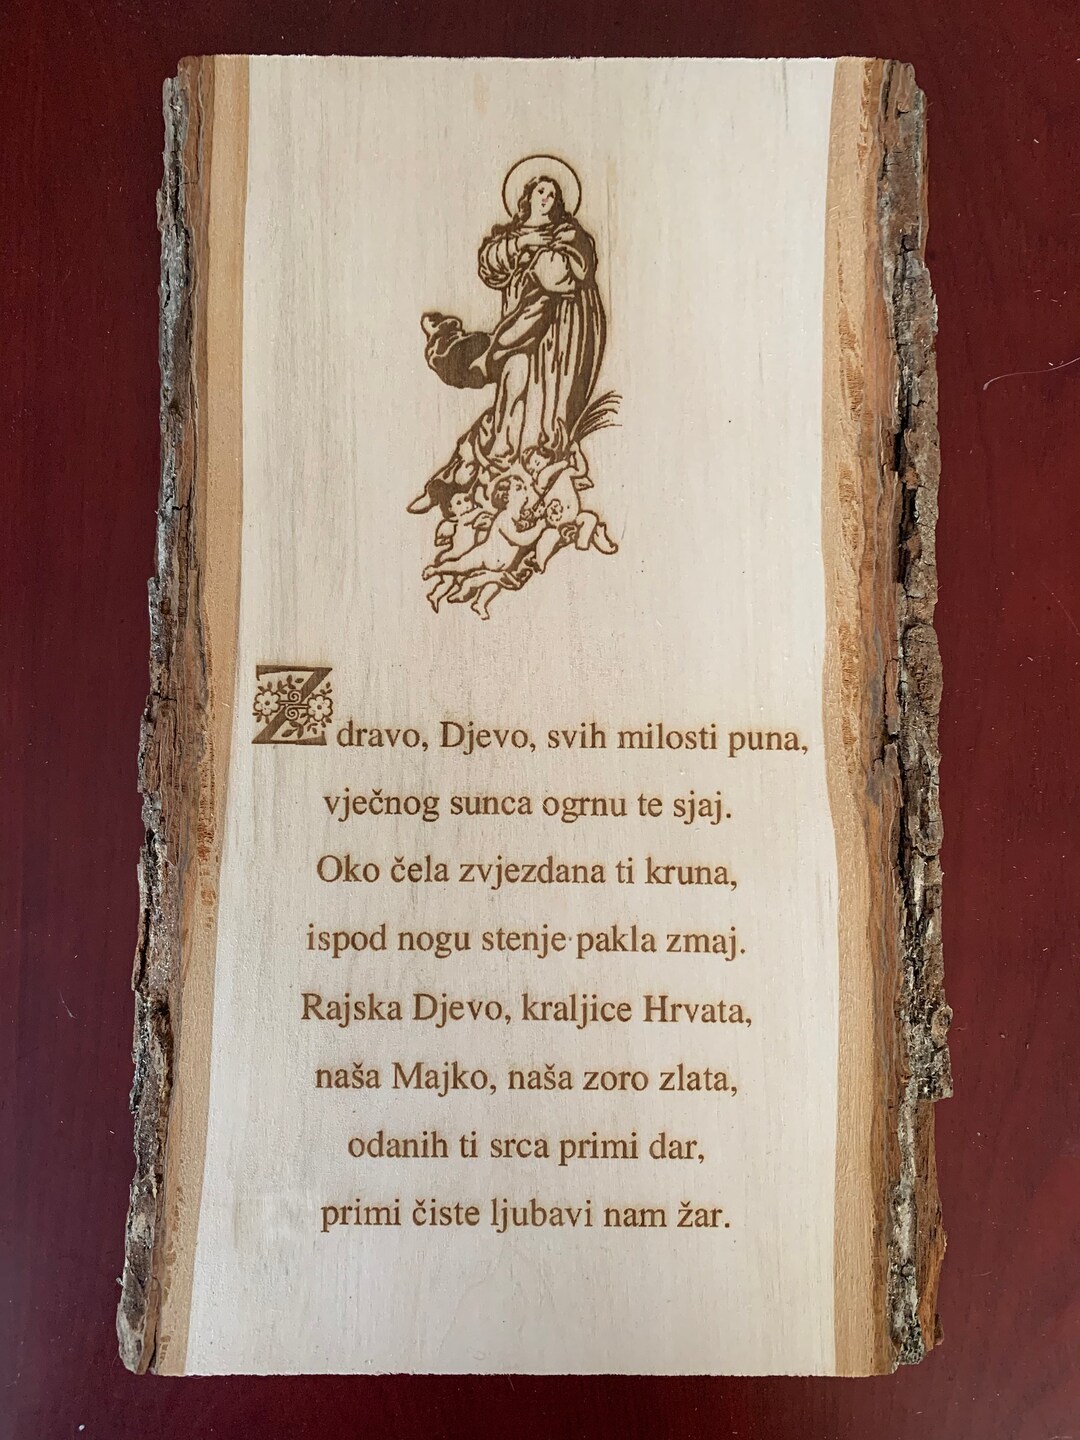 Zdravo, Djevo, svih milosti puna,
vječnog sunca ogrnu te sjaj.
Oko čela zvjezdana ti kruna,
ispod nogu stenje pakla zmaj.
Rajska Djevo, kraljice Hrvata,
naša Majko, naša zoro zlata,
odanih ti srca primi dar,
primi čiste ljubavi nam žar.